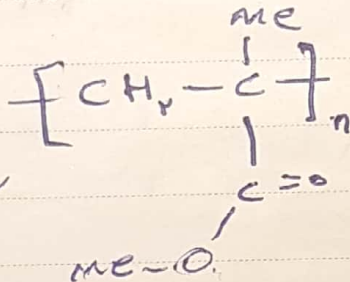 Me
[CH₂-C]n
C=O
Me-O